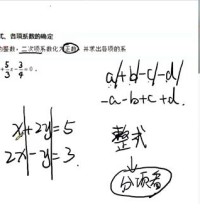 式、各项系数的确定
的整数，二次项系数化为正数，并求出各项的系
+5/3x-3/4=0。
a/+b/-c/-d/
-a-b+c+d.
x+2y=5
2x-y=3
整式
分项者